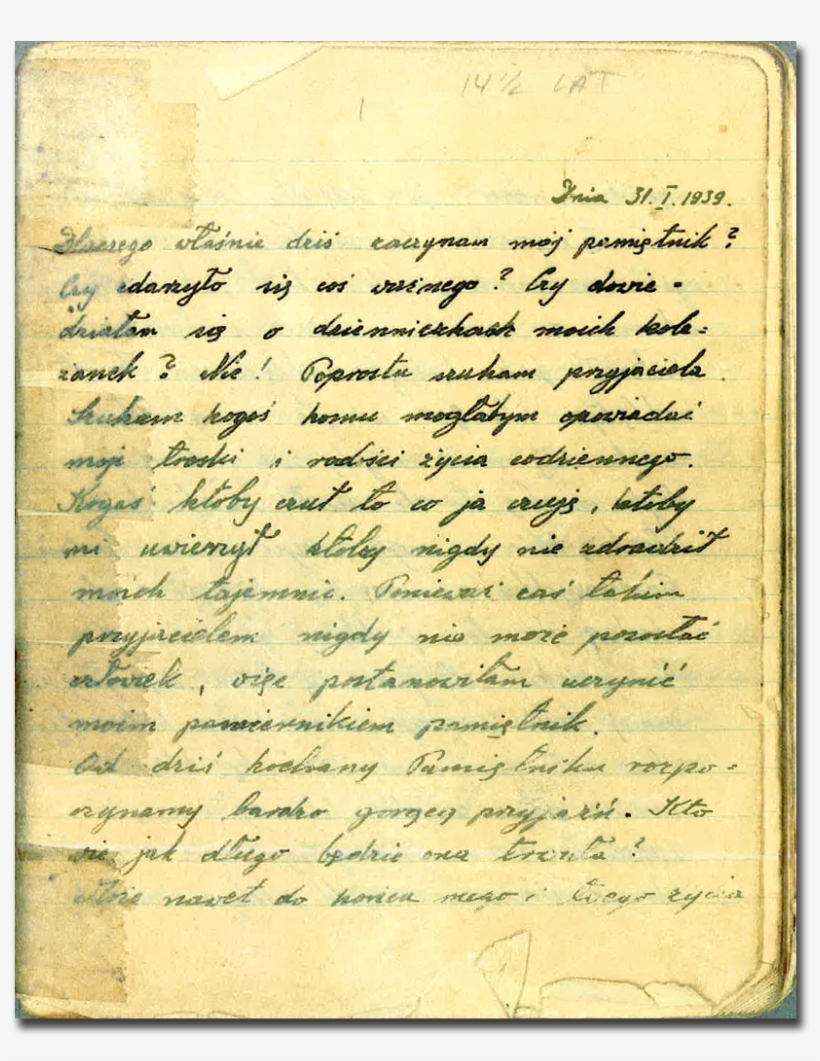 14 ½ LAT
1
Dnia 31. I. 1939.
Dlaczego właśnie dziś zaczynam mój pamiętnik?
Czy zdarzyło się coś ważnego? Czy dowie-
działam się o dzienniczkach moich kole=
żanek? Nie! Poprostu szukam przyjaciela.
Szukam kogoś komu mogłabym opowiadać
moje troski i radości życia codziennego.
Kogoś któby czuł to co ja czuję, któby
mi uwierzył któby nigdy nie zdradził
moich tajemnic. Ponieważ zaś takim
przyjacielem nigdy nie może pozostać
człowiek, więc postanowiłam uczynić
moim powiernikiem pamiętnik.
Od dziś kochany Pamiętniku rozpo-
czynamy bardzo gorącą przyjaźń. Kto
wie jak długo będzie ona trwała?
Może nawet do końca mego i twego życia